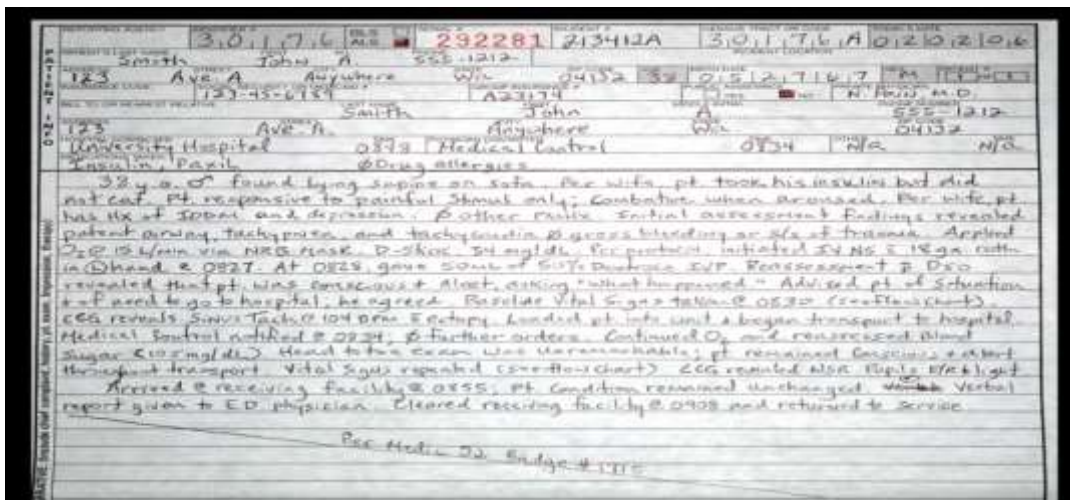 3,0,1,7,6 BLS ALS 292281 213412A 3,0,1,7,6,A 0,2,0,2,0,6
Smith John A 555-1212
123 Ave. A Anywhere Wis 04132 38 0,5,2,7,6,7 M
A23174 N. Paul M.D.
Smith John A 555-1212
123 Ave. A. Anywhere Wis 04132
University Hospital 0878 Medical Control 0834 N/A N/A
Insulin, Paxil Ø Drug allergies
PATIENT INFO
38 y.o. ♂ found lying supine on sofa. Per wife, pt. took his insulin but did
not eat. Pt. responsive to painful stimuli only; combative when aroused. Per wife, pt
has Hx of IDDM and depression. Ø other PMHx. Initial assessment findings revealed
patent airway, tachypnea, and tachycardia Ø gross bleeding or s/s of trauma. Applied
O2 @ 15 L/min via NRB mask. D-Stick 34 mg/dL. Per protocol initiated IV NS c 18 ga. cath
in (L) hand @ 0827. At 0828, gave 50mL of 50% Dextrose IVP. Reassessment p D50
revealed that pt. was conscious + Alert, asking "what happened" Advised pt of situation
+ of need to go to hospital, he agreed. Baseline Vital Signs taken @ 0830 (see flow chart).
ECG reveals Sinus Tach @ 104 bpm s ectopy. Loaded pt into unit + began transport to hospital.
Medical Control notified @ 0834; Ø further orders. Continued O2 and reassessed blood
sugar (105 mg/dL) Head to toe exam was unremarkable; pt remained conscious + alert
throughout transport. Vital Signs repeated (see flow chart) ECG revealed NSR. Pupils light
Arrived @ receiving facility @ 0855; Pt. condition remained unchanged. Verbal
report given to ED physician. Cleared receiving facility @ 0908 and returned to service
Medic 72 Badge #